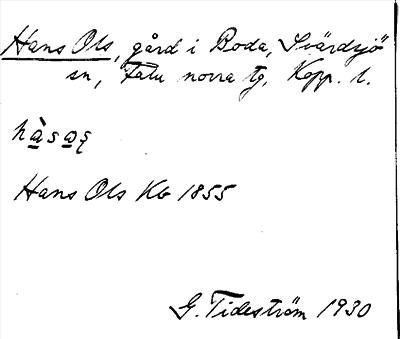 Hans Ols, gård i Boda, Svärdsjö
sn, Falu norra tg, Kopp. l.
Hans Ols Kb 1855
G. Tideström 1930